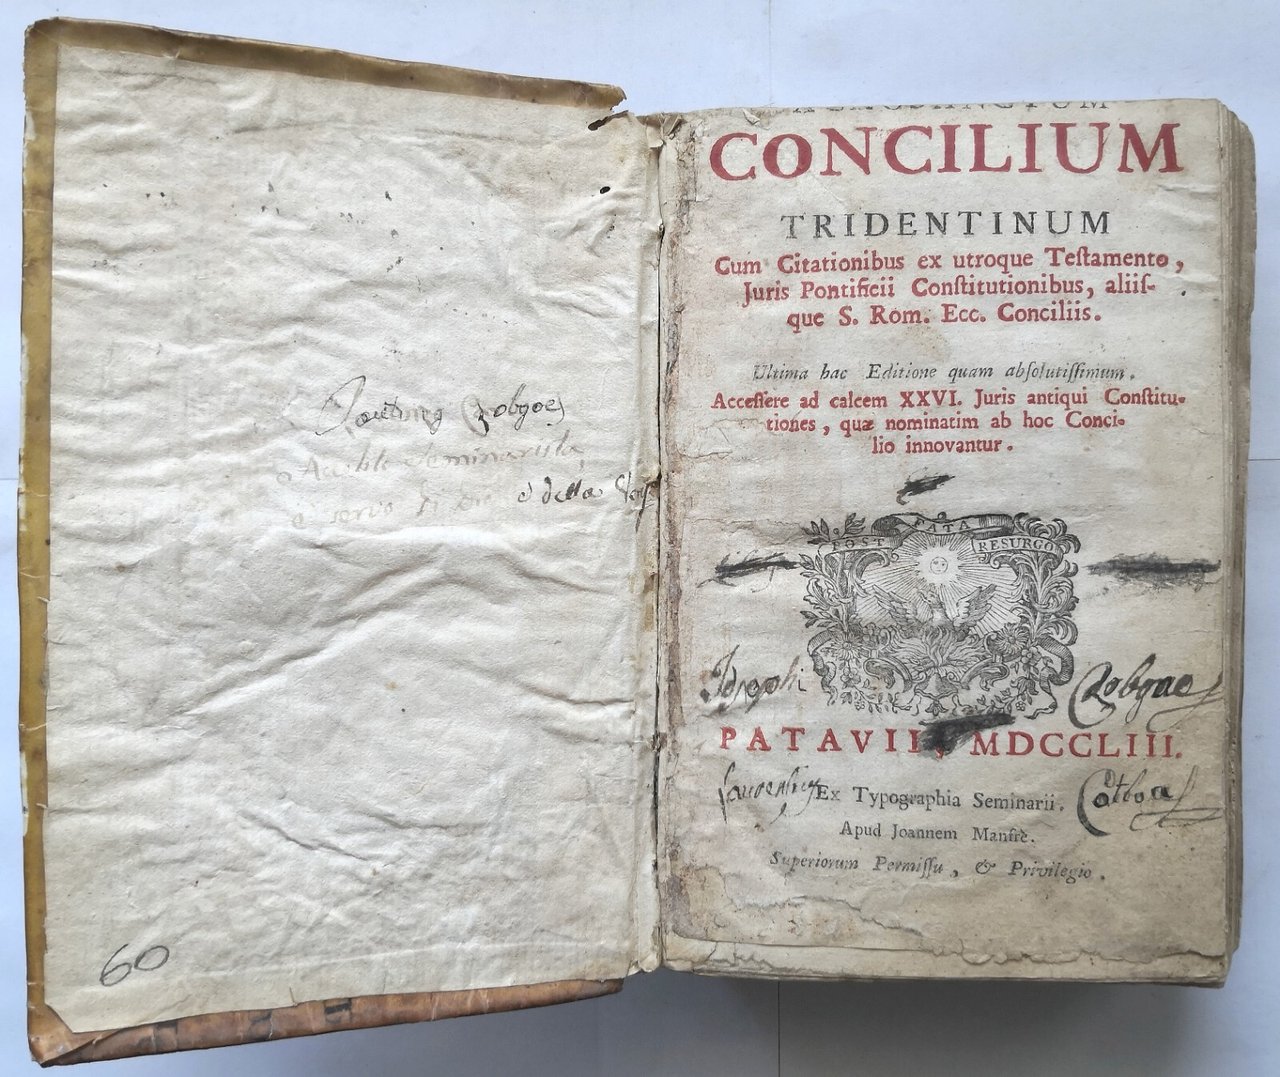 è della
60
SACROSANCTUM
CONCILIUM
TRIDENTINUM
Cum Citationibus ex utroque Teſtamento,
Juris Pontificii Conſtitutionibus, aliiſ-
que S. Rom. Ecc. Conciliis.
Ultima hac Editione quam abſolutiſſimum.
Acceſſere ad calcem XXVI. Juris antiqui Conſtitu-
tiones, quæ nominatim ab hoc Conci-
lio innovantur.
POST FATA RESURGO
Josephi
PATAVII, MDCCLIII.
Ex Typographia Seminarii.
Apud Joannem Manfrè.
Superiorum Permiſſu, & Privilegio.